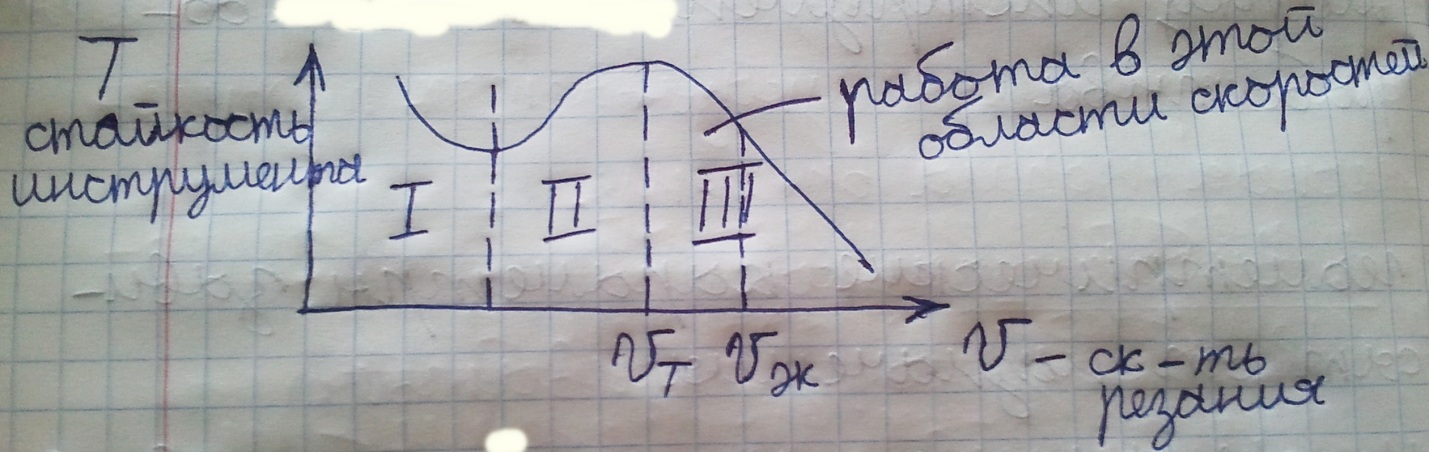 T
стойкость
инструмента
работа в этой
области скоростей
I
II
III
v_T
v_эк
v - ск-ть
резания